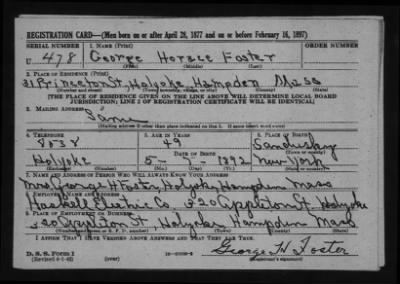 REGISTRATION CARD—(Men born on or after April 28, 1877 and on or before February 16, 1897)
SERIAL NUMBER 1. NAME (Print) ORDER NUMBER
U 478 George Horace Foster
(First) (Middle) (Last)
2. PLACE OF RESIDENCE (Print)
31 Princeton St, Holyoke Hampden Mass
(Number and street) (Town, township, village, or city) (County) (State)
[THE PLACE OF RESIDENCE GIVEN ON THE LINE ABOVE WILL DETERMINE LOCAL BOARD
JURISDICTION; LINE 2 OF REGISTRATION CERTIFICATE WILL BE IDENTICAL]
3. MAILING ADDRESS
Same
[Mailing address if other than place indicated on line 2. If same insert word same]
4. TELEPHONE 5. AGE IN YEARS 6. PLACE OF BIRTH
8038 49 Sandusky
DATE OF BIRTH (Town or county)
Holyoke 5- 7- 1892 New York
(Exchange) (Number) (Mo.) (Day) (Yr.) (State or country)
7. NAME AND ADDRESS OF PERSON WHO WILL ALWAYS KNOW YOUR ADDRESS
Mrs George H Foster, Holyoke, Hampden Mass
8. EMPLOYER'S NAME AND ADDRESS
Haskell Electric Co 320 Appleton St. Holyoke
9. PLACE OF EMPLOYMENT OR BUSINESS
320 Appleton St, Holyoke Hampden Mass
(Number and street or R. F. D. number) (Town) (County) (State)
I AFFIRM THAT I HAVE VERIFIED ABOVE ANSWERS AND THAT THEY ARE TRUE.
D. S. S. Form 1
(Revised 4-1-42) (over) George H. Foster
(Registrant's signature)